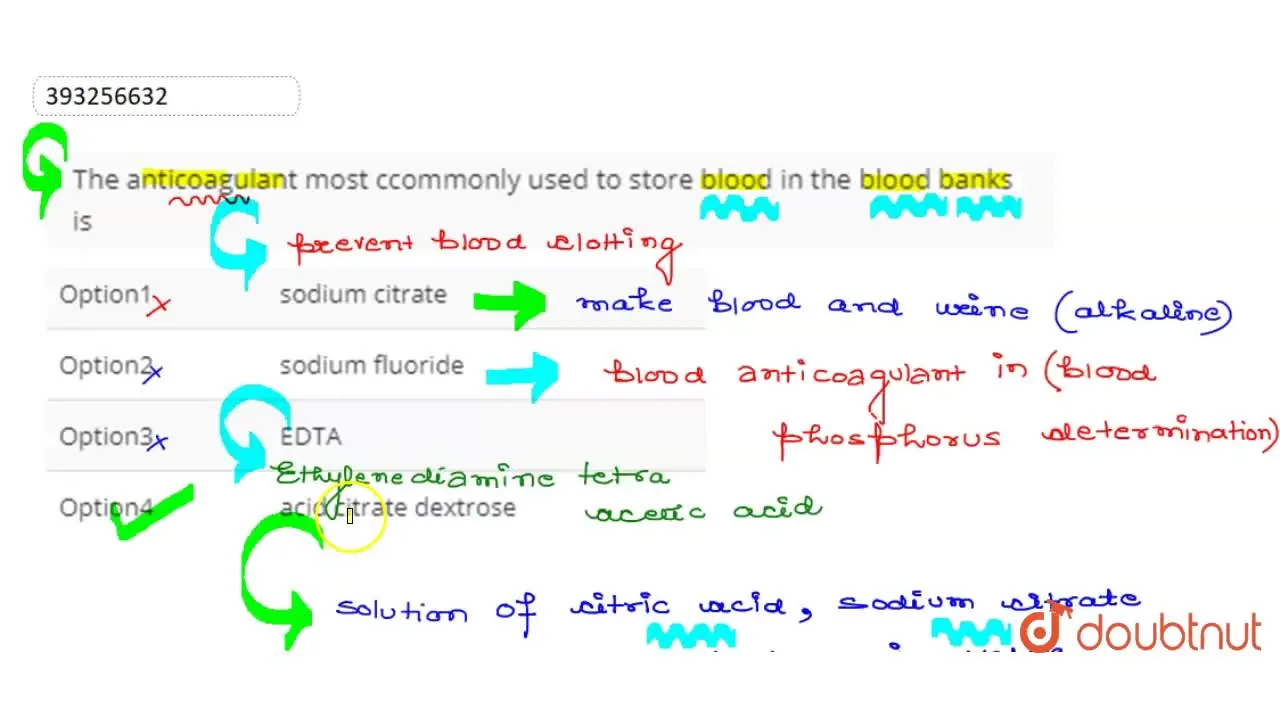 393256632
The anticoagulant most ccommonly used to store blood in the blood banks
is
prevent blood clotting
Option1 x sodium citrate make blood and urine (alkaline)
Option2 x sodium fluoride blood anticoagulant in (blood
phosphorus determination)
Option3 x EDTA
Ethylenediamine tetra
acetic acid
Option4 acid citrate dextrose
solution of citric acid, sodium citrate
doubtnut